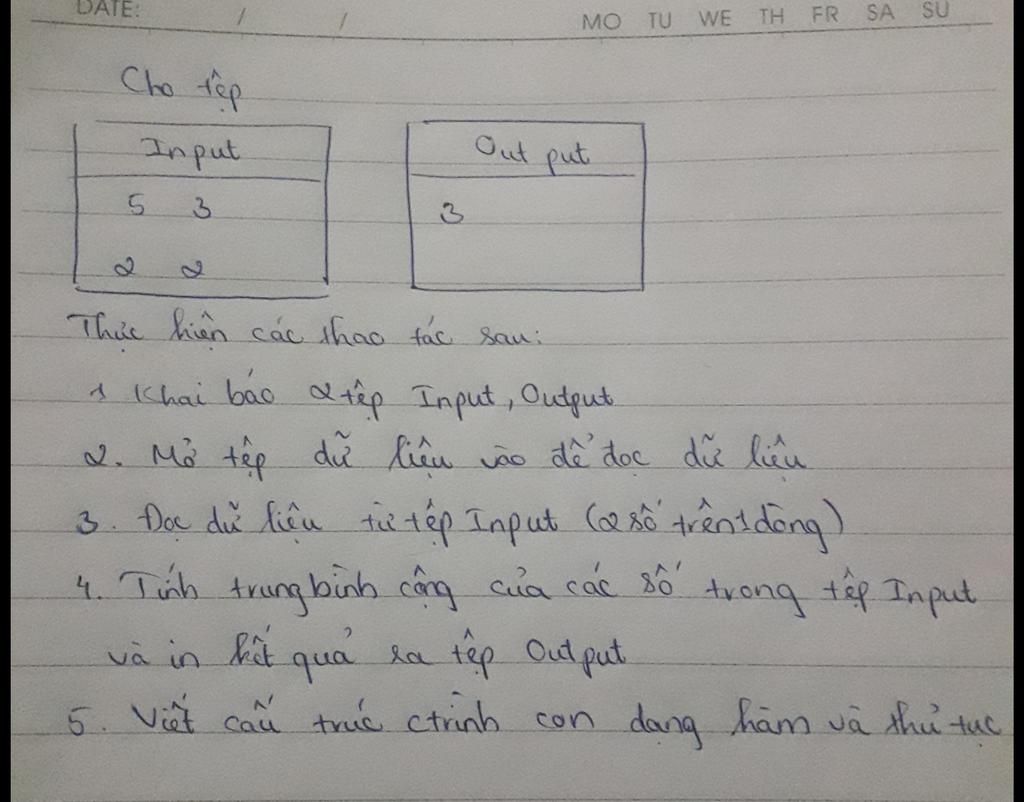 DATE: / / MO TU WE TH FR SA SU
Cho tệp
Input Output
5 3 3
2 2
Thực hiện các thao tác sau:
1 Khai báo 2 tệp Input, Output
2. Mở tệp dữ liệu vào để đọc dữ liệu
3. Đọc dữ liệu từ tệp Input (2 số trên 1 dòng)
4. Tính trung bình cộng của các số trong tệp Input
và in kết quả ra tệp Output
5. Viết cấu trúc ctrình con dạng hàm và thủ tục